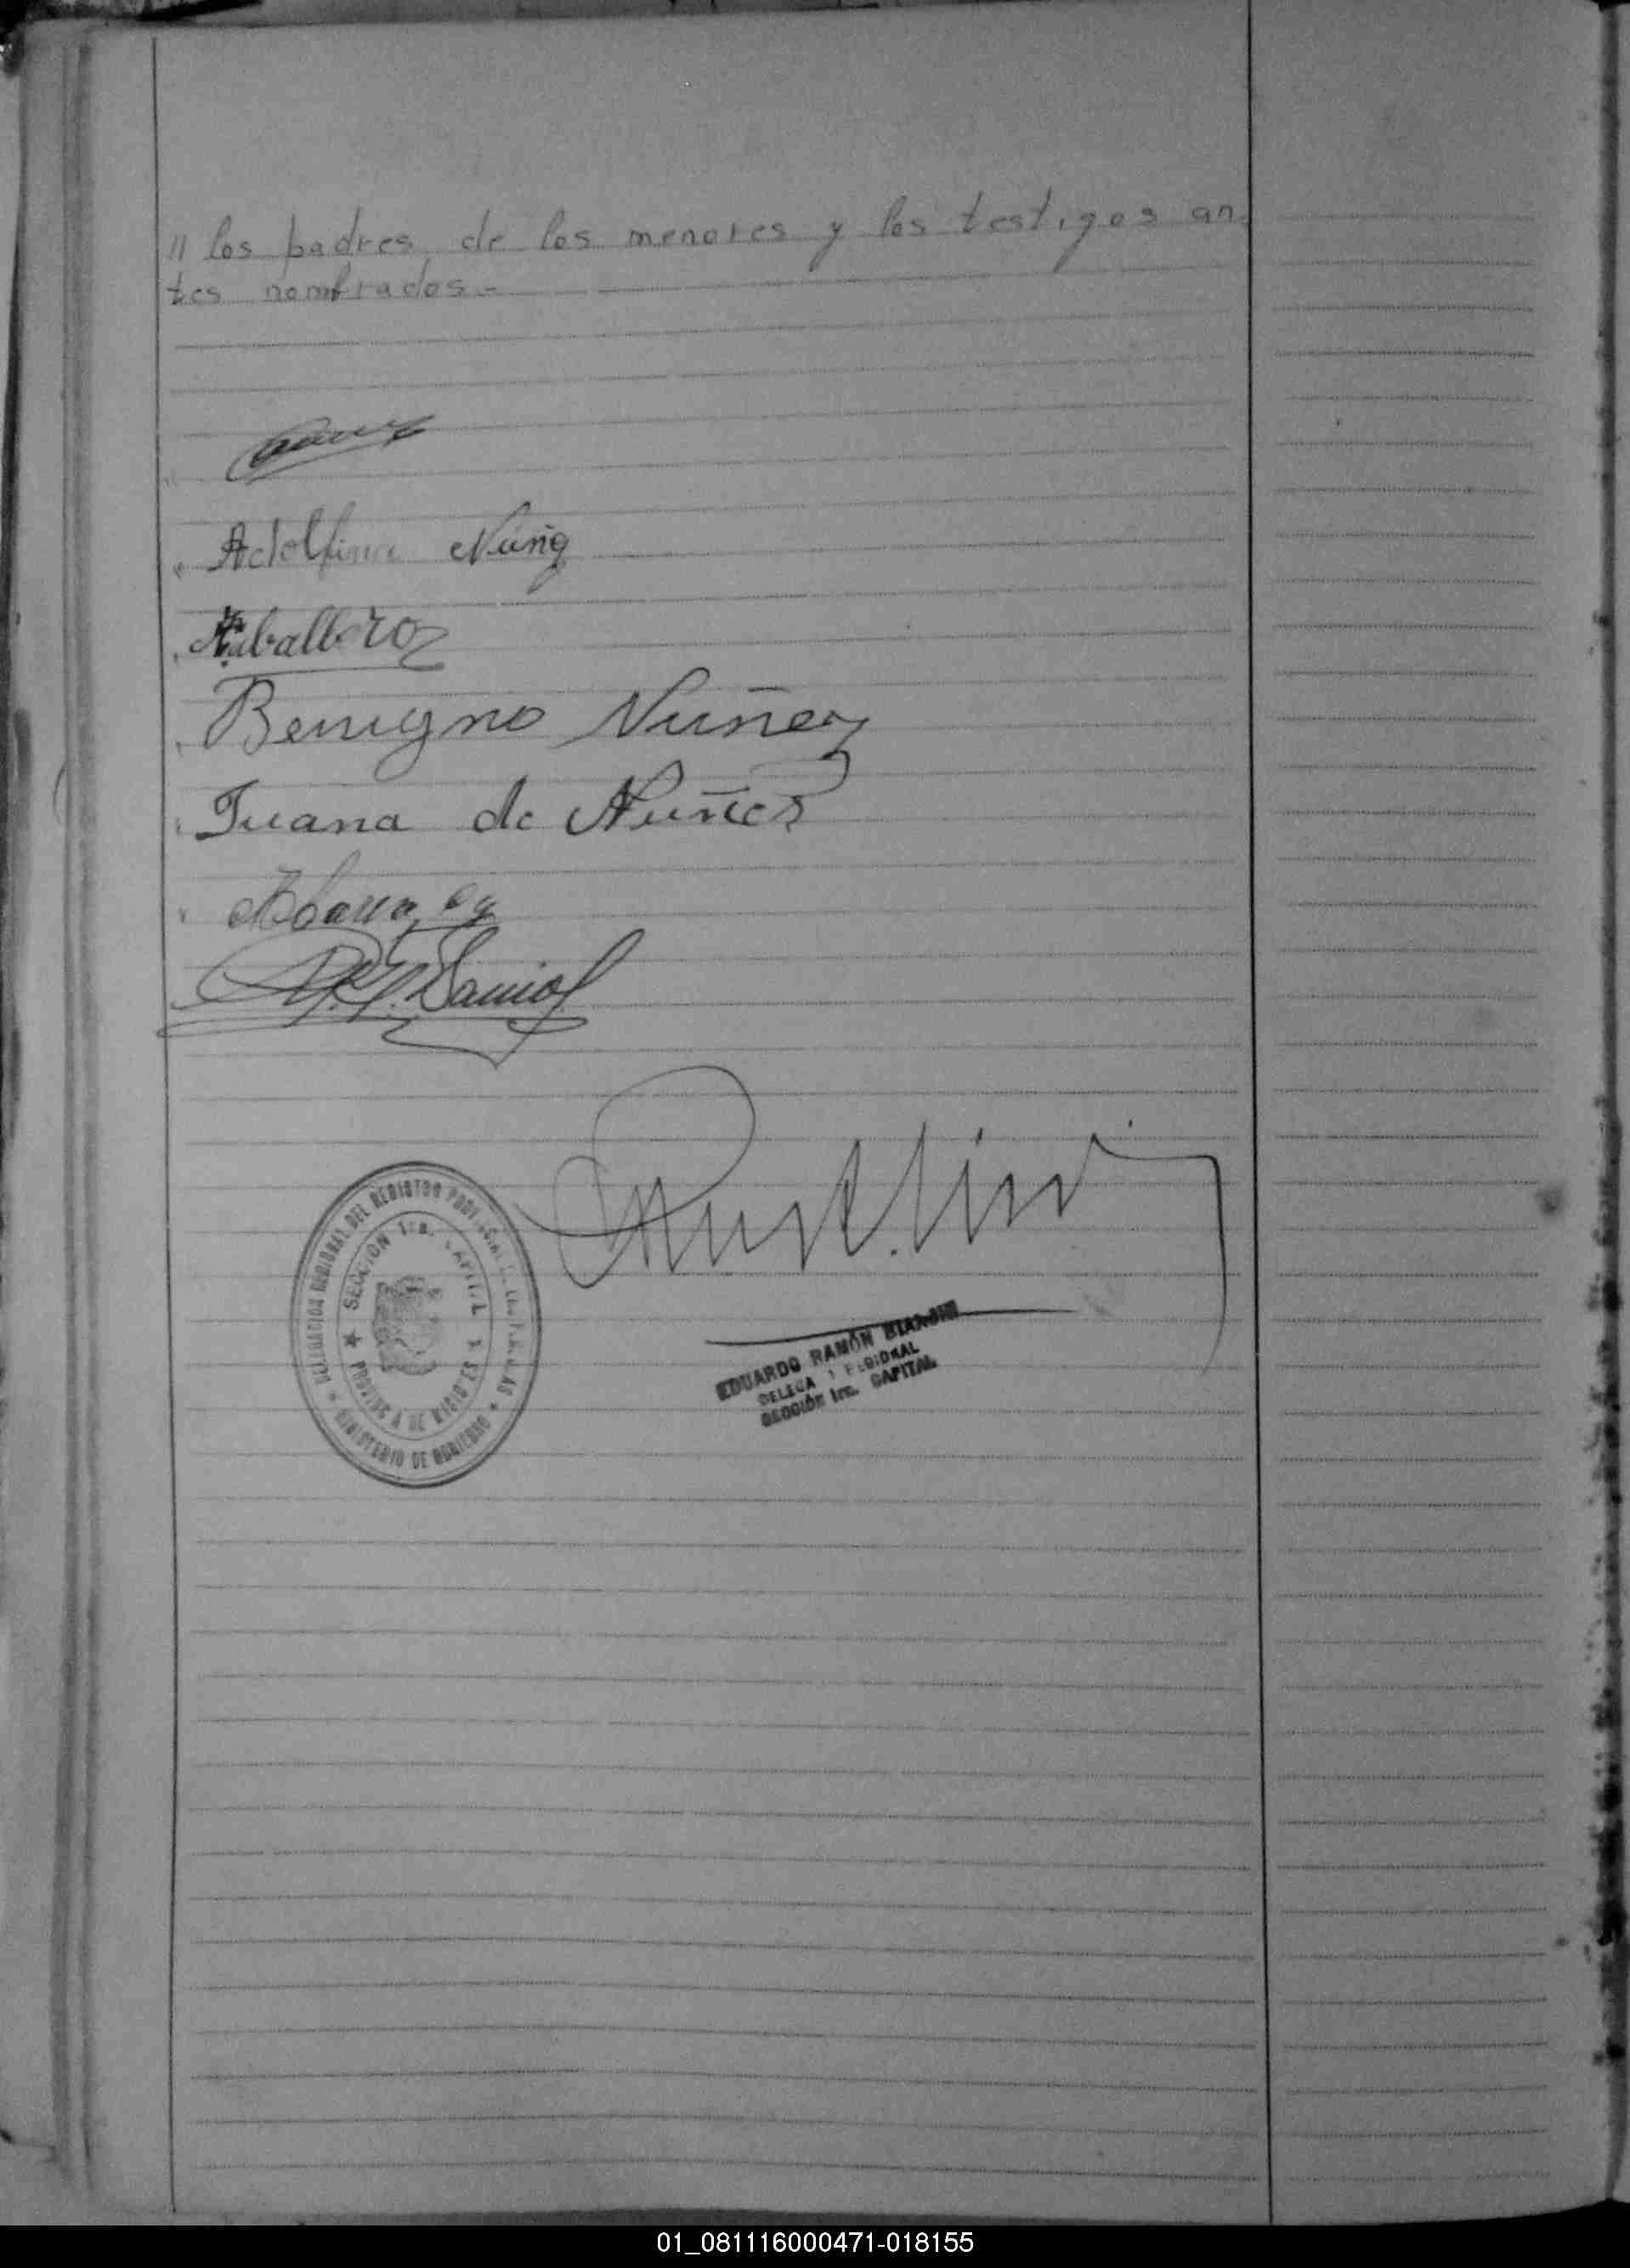 // los padres de los menores y los testigos an-
tes nombrados.-
Adolfina Núñez
Caballero
Benigno Nuñez
Juana de Nuñez
DELEGACION REGIONAL DEL REGISTRO PROVINCIAL DE LAS PERSONAS
SECCION 1ra. CAPITAL
PROVINCIA DE MISIONES
MINISTERIO DE GOBIERNO
EDUARDO RAMÓN BIANCHI
DELEGADO REGIONAL
SECCIÓN 1ra. CAPITAL
01_081116000471-018155